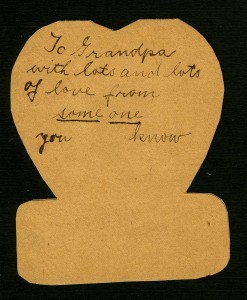 To Grandpa
with lots and lots
of love from
some one
you know